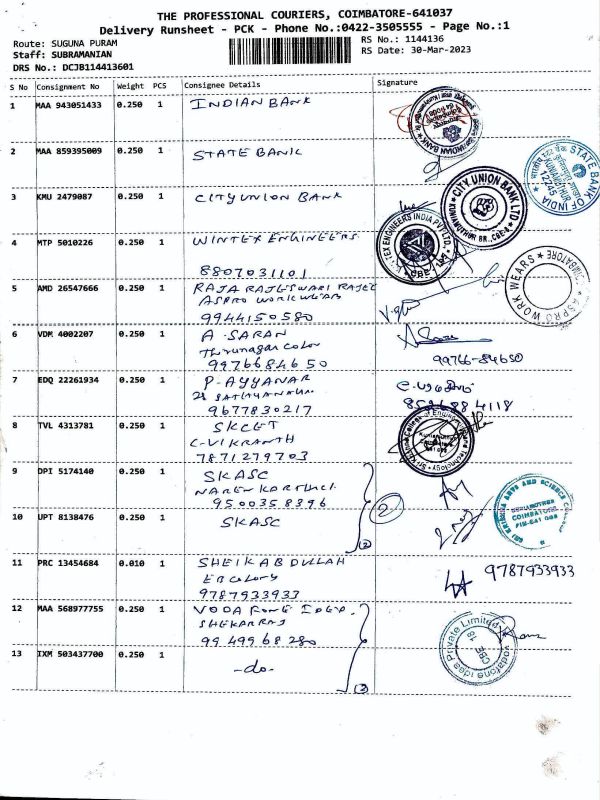 THE PROFESSIONAL COURIERS, COIMBATORE-641037
Delivery Runsheet - PCK - Phone No.:0422-3505555 - Page No.:1
Route: SUGUNA PURAM
RS No.: 1144136
Staff: SUBRAMANIAN
RS Date: 30-Mar-2023
DRS No.: DCJB114413601
S No Consignment No Weight PCS Consignee Details Signature
1 MAA 943051433 0.250 1 INDIAN BANK
2 MAA 859395009 0.250 1 STATE BANK
STATE BANK OF INDIA
3 KMU 2479087 0.250 1 CITY UNION BANK
CITY UNION BANK LTD
4 MTP 5010226 0.250 1 WINTEX ENGINEERS
8807031101
5 AMD 26547666 0.250 1 RAJA RAJESWARI
ASPRO WORKWEAR
9944150580
ASPRO WORK WEARS
COIMBATORE
6 VDM 4002207 0.250 1 A. SARAN
9976684650
99766-84650
7 EDQ 22261934 0.250 1 P-AYYANAR
9677830217
8526884118
8 TVL 4313781 0.250 1 SKCET
C-VIKRANTH
7871279703
9 DPI 5174140 0.250 1 SKASC
NAREN KARTHICK
9500358396
2
10 UPT 8138476 0.250 1 SKASC
(2)
COIMBATORE
11 PRC 13454684 0.010 1 SHEIK ABDULLAH
EB COLONY
9787933933
9787933933
12 MAA 568977755 0.250 1 VODAFONE IDEA
SHEKARRAJ
9949968280
Vodafone Idea Private Limited
CBE
18
13 IXM 503437700 0.250 1 -do-
(2)